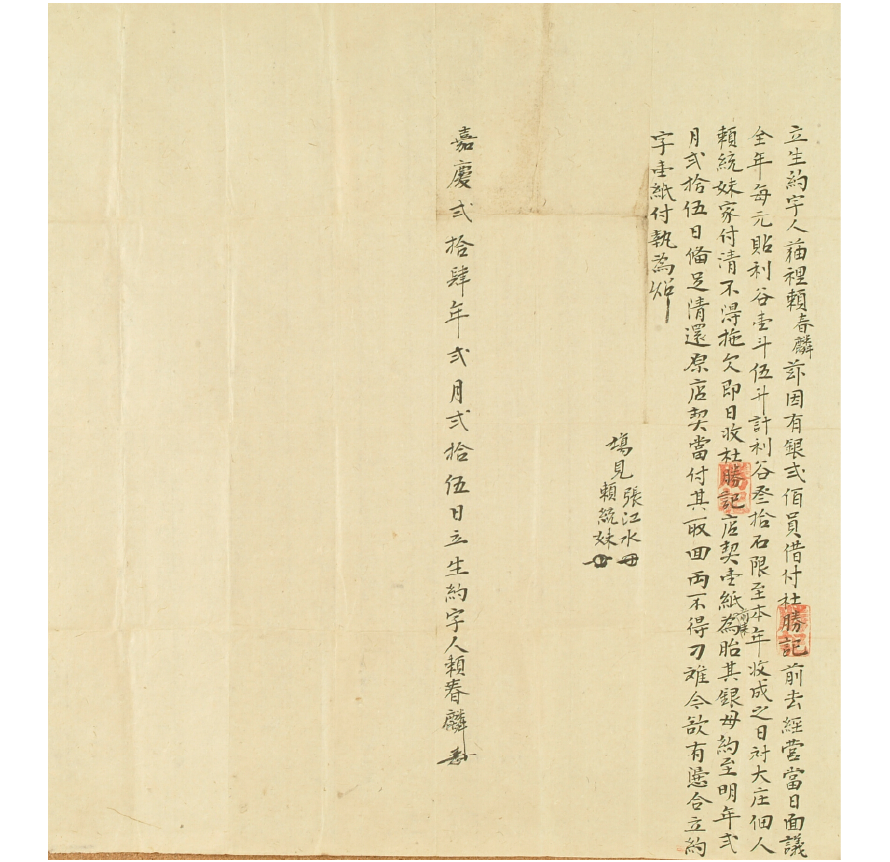 立生約字人 裡賴春麟茲因有銀弍佰員借付杜勝記前去經營當日面議
全年每元貼利谷壹斗伍升計利谷叁拾石限至本年收成之日対大庄佃人
賴統妹家付清不得拖欠即日收杜勝記店契壹紙前來為胎其銀母約至明年弍
月弍拾伍日俻足清還原店契當付其取回両不得刁难今欲有憑合立約
字壹紙付執為炤
塲見張江水
賴統妹
嘉慶弍拾肆年弍月弍拾伍日立生約字人賴春麟